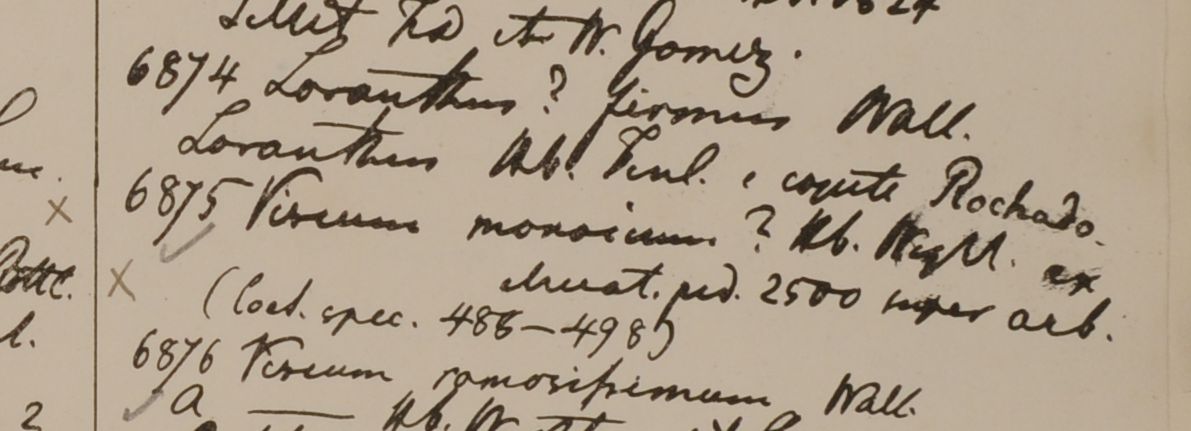 W. Gomez.
6874 Loranthus? firmus Wall.
Loranthus Hb. Finl. e Rochado.
6875 Viscum monoicum? Hb. Wight. ex
elevat. ped. 2500 super arb.
(Coel. spec. 486-498)
6876 Viscum ramosissimum Wall.
a — Hb.